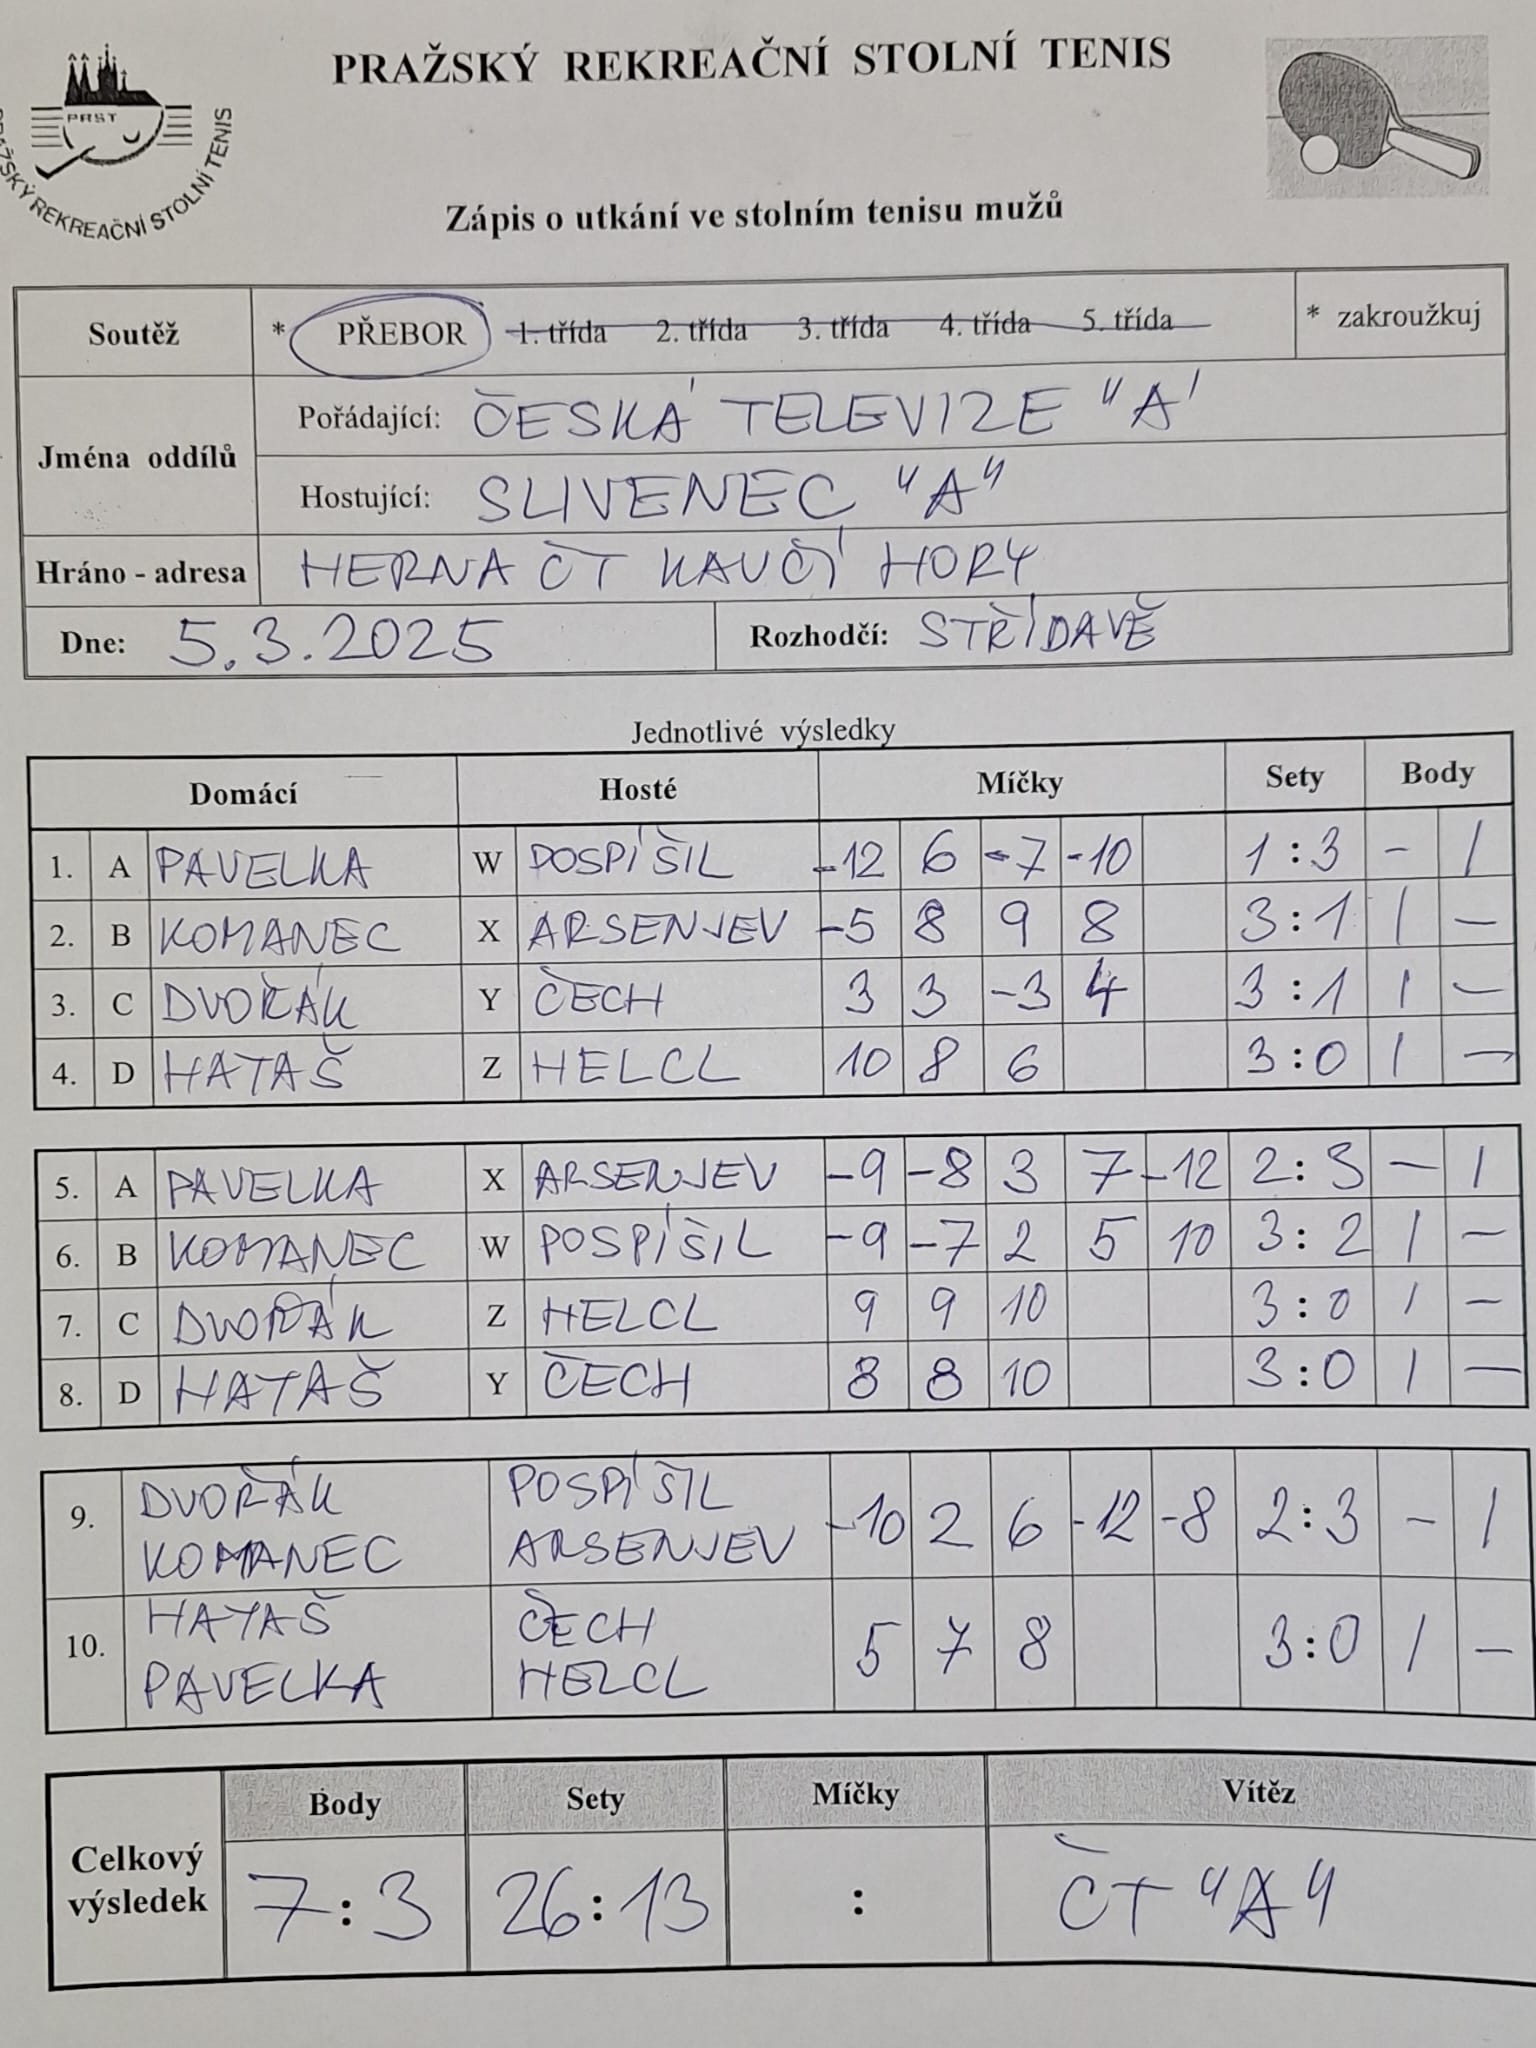 PRAŽSKÝ REKREAČNÍ STOLNÍ TENIS
PRST
PRAŽSKÝ REKREAČNÍ STOLNÍ TENIS
Zápis o utkání ve stolním tenisu mužů
Soutěž * PŘEBOR 1. třída 2. třída 3. třída 4. třída 5. třída * zakroužkuj
Jména oddílů
Pořádající: ČESKÁ TELEVIZE "A'
Hostující: SLIVENEC "A"
Hráno - adresa HERNA ČT KAVČÍ HORY
Dne: 5.3.2025 Rozhodčí: STŘÍDAVĚ
Jednotlivé výsledky
Domácí Hosté Míčky Sety Body
1. A PAVELKA W POSPÍŠIL -12 6 -7 -10 1:3 - 1
2. B KOMANEC X ARSENJEV -5 8 9 8 3:1 1 -
3. C DVOŘÁK Y ČECH 3 3 -3 4 3:1 1 -
4. D HATAŠ Z HELCL 10 8 6 3:0 1 -
5. A PAVELKA X ARSENJEV -9 -8 3 7 -12 2:3 - 1
6. B KOMANEC W POSPÍŠIL -9 -7 2 5 10 3:2 1 -
7. C DVOŘÁK Z HELCL 9 9 10 3:0 1 -
8. D HATAŠ Y ČECH 8 8 10 3:0 1 -
9. DVOŘÁK POSPÍŠIL -10 2 6 -12 -8 2:3 - 1
KOMANEC ARSENJEV
10. HATAŠ ČECH 5 7 8 3:0 1 -
PAVELKA HELCL
Celkový výsledek
Body Sety Míčky Vítěz
7:3 26:13 : ČT "A"